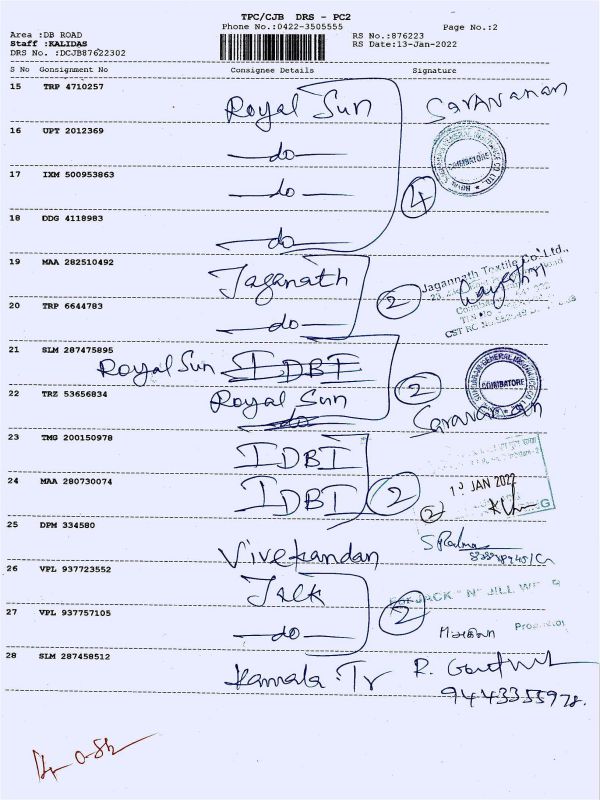 TPC/CJB DRS - PC2
Phone No.:0422-3505555 Page No.:2
Area :DB ROAD RS No.:876223
Staff :KALIDAS RS Date:13-Jan-2022
DRS No. :DCJB87622302
S No Consignment No Consignee Details Signature
15 TRP 4710257 Royal Sun Saravanan
16 UPT 2012369 do
COIMBATORE
17 IXM 500953863 do
4
18 DDG 4118983 do
19 MAA 282510492 Jaganath
Jagannath Textile Co. Ltd.,
20 TRP 6644783 do 2
CST RC No
21 SLM 287475895 Royal Sun IDBI
COIMBATORE
22 TRZ 53656834 Royal Sun 2
do
Saravanan
23 TMG 200150978 IDBI
24 MAA 280730074 IDBI 2
13 JAN 2022
2
25 DPM 334580 Vivekandan
26 VPL 937723552 Jack
For JACK " N" JILL
27 VPL 937757105 do 2
Proprietor
28 SLM 287458512 Kamala Tr R.